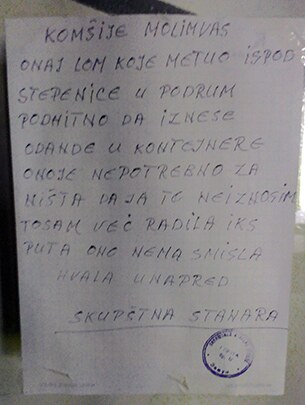 KOMŠIJE MOLIMVAS
ONAJ LOM KOJE METUO ISPOD
STEPENICE U PODRUM
PODHITNO DA IZNESE
ODANDE U KONTEJNERE
ONOJE NEPOTREBNO ZA
NIŠTA DA JA TO NEIZNOSIM
TOSAM VEĆ RADILA IKS
PUTA ONO NEMA SMISLA
HVALA UNAPRED
SKUPŠTNA STANARA